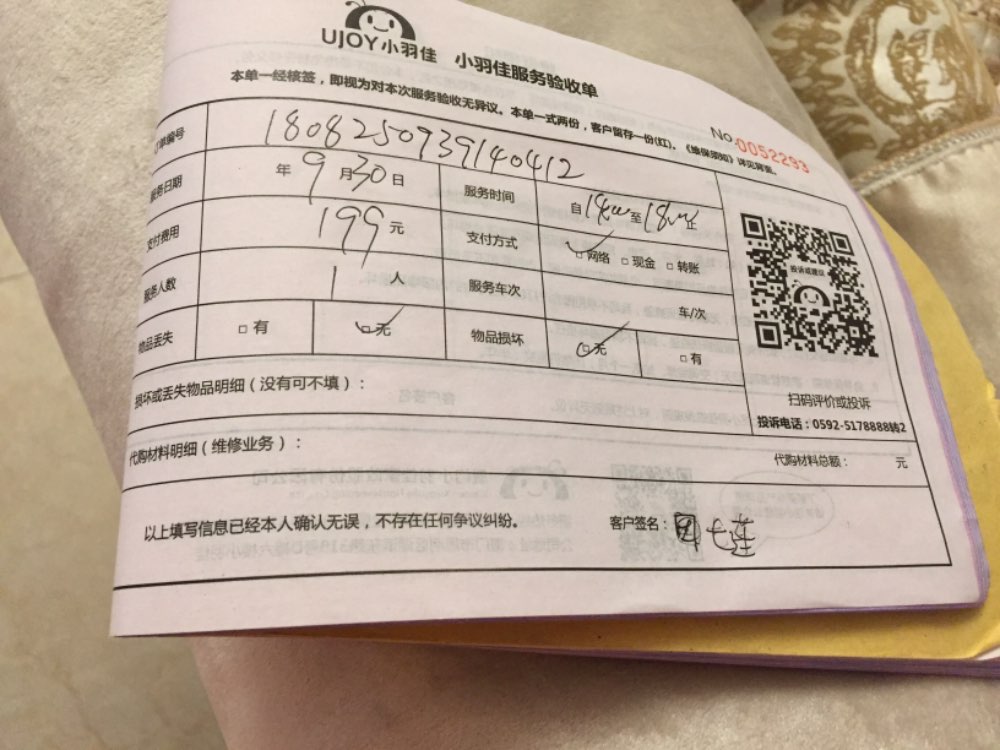 UJOY小羽佳 小羽佳服务验收单
本单一经核签，即视为对本次服务验收无异议。本单一式两份，客户留存一份(红)。《维保须知》详见背面。
No.0052293
订单编号 1808250939140412
服务日期 年 9 月 30 日 服务时间 自 至 止
支付费用 199 元 支付方式 □网络 □现金 □转账
服务人数 1 人 服务车次 车/次
物品丢失 □有 □无 物品损坏 □无 □有
投诉或建议
扫码评价或投诉
投诉电话：0592-5178888转2
损坏或丢失物品明细（没有可不填）：
代购材料明细（维修业务）：
代购材料总额： 元
以上填写信息已经本人确认无误，不存在任何争议纠纷。 客户签名：